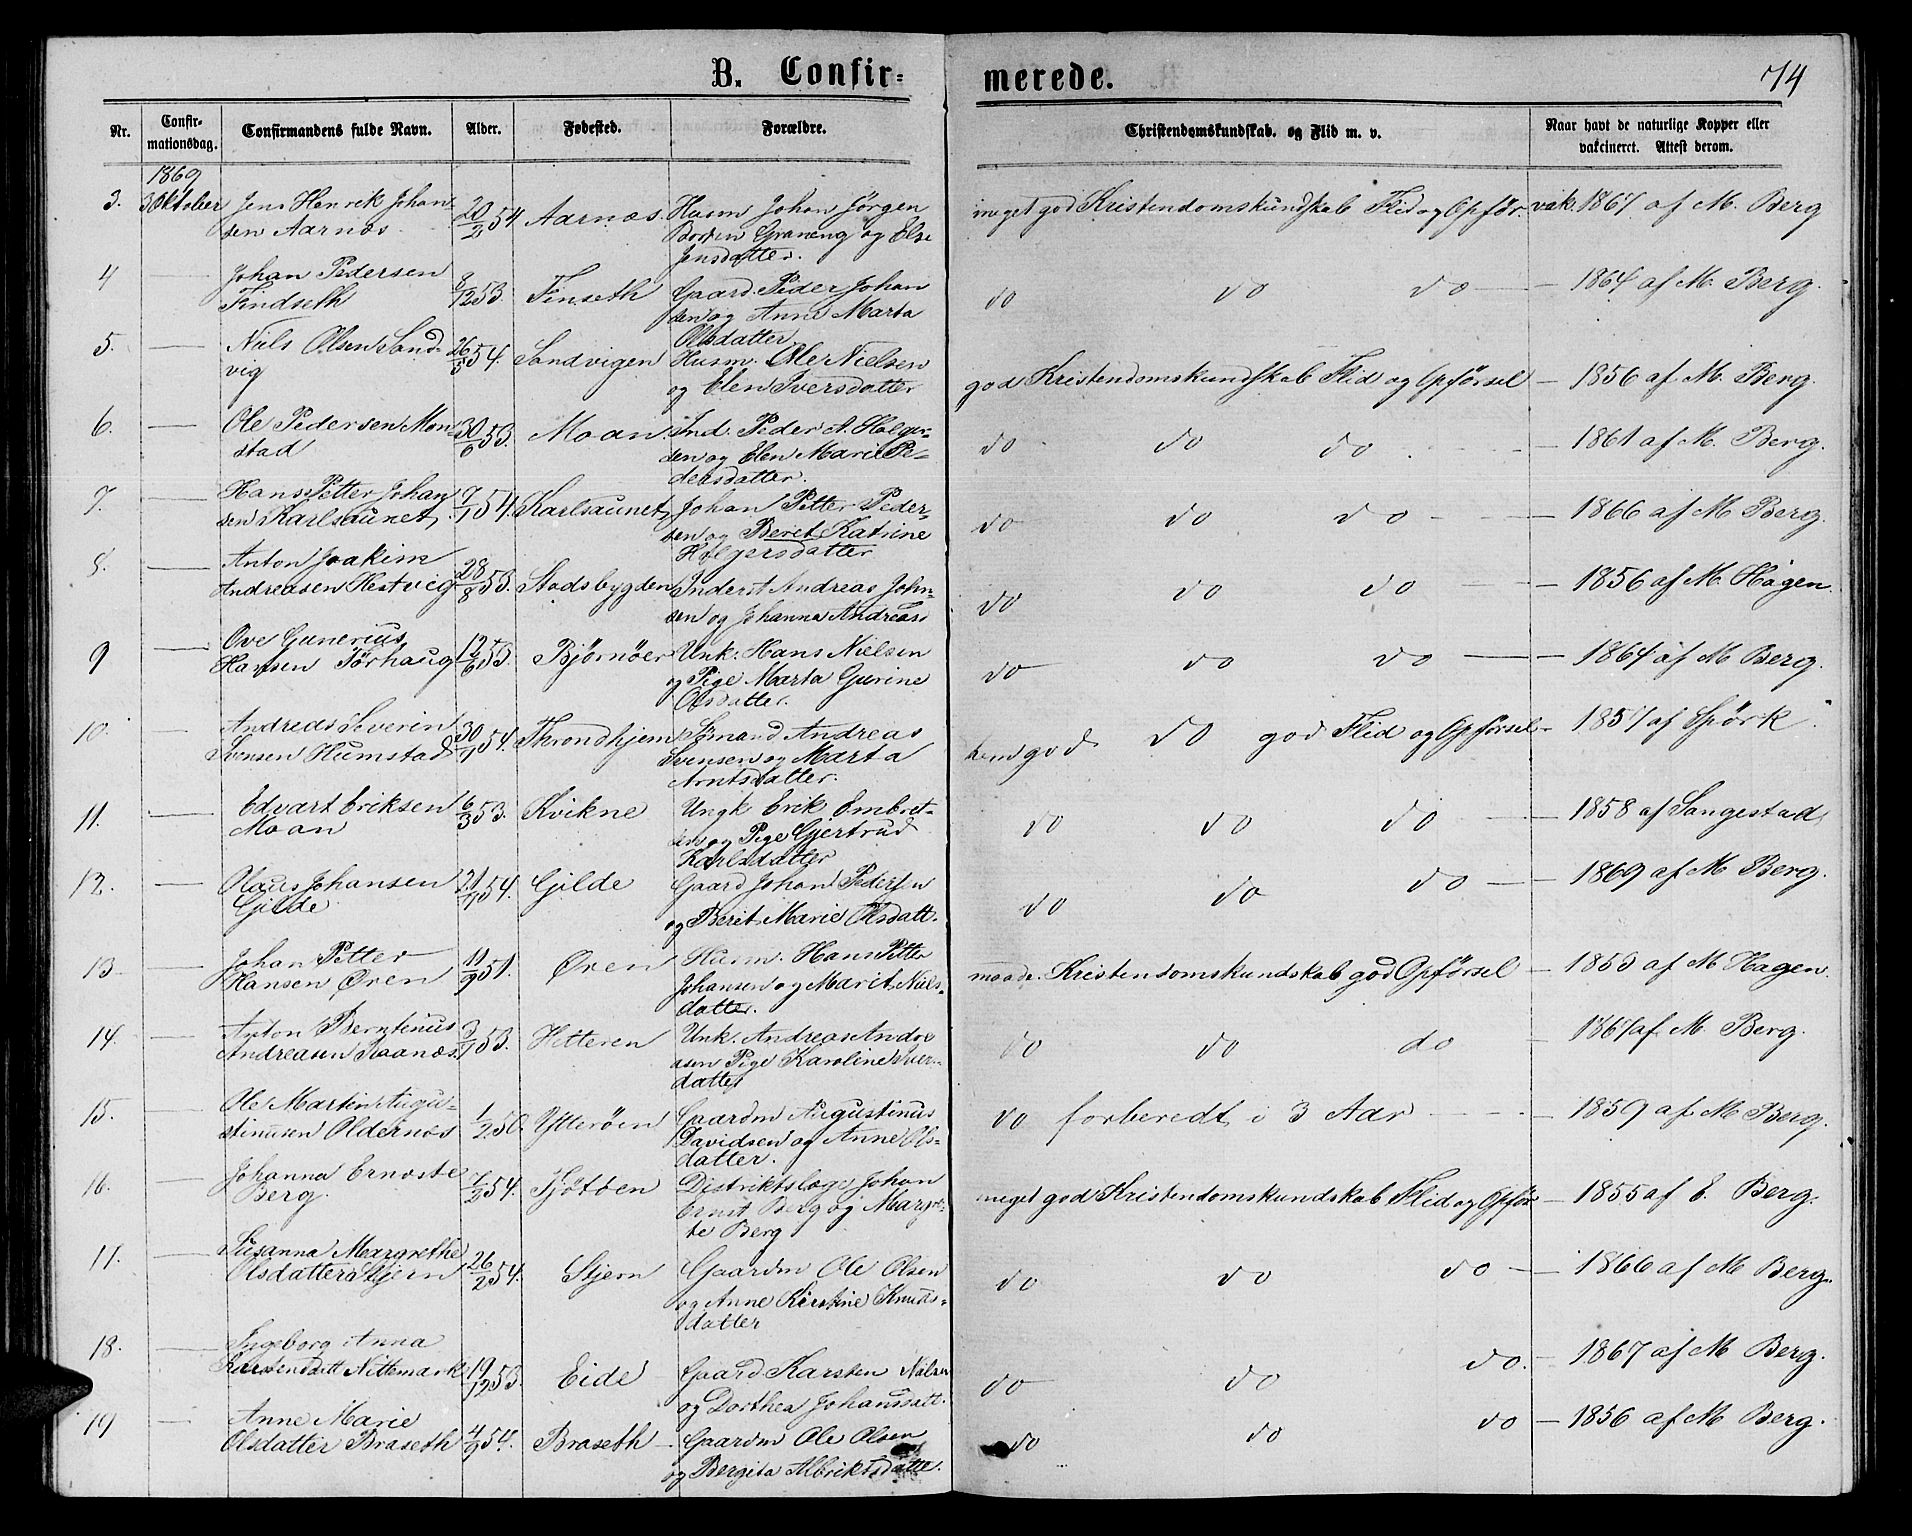 B. Confir-
merede.
74
Nr.
Confir-
mationsdag.
Confirmandens fulde Navn.
Alder.
Fødested.
Forældre.
Christendomskundskab og Flid m. v.
Naar havt de naturlige Kopper eller
vakcineret. Attest derom.
1869
3. 3 Oktober Jens Henrik Johan- 20/2 54 Aarnæs. Husm Johan Jørgen meget god Kristendomskundskab Flid og Opför. vak. 1867 af M. Berg
sen Aarnæs Graneng og Else
Jensdatter.
4 Johan Pedersen 8/12 53 Finseth Gaard. Peder Johan do do do 1864 af M. Berg.
Findseth sen og Anne Marta
Olsdatter
5. Niels Olsen Sand- 26/5 54. Sandvigen Husm. Ole Nielsen god Kristendomskundskab Flid og Opförsel 1856 af M. Berg.
vig og Elen Iversdatter
6. Ole Pedersen Mon- 30/6 53. Moan Ind. Peder A. Holger- do do do 1861 af M. Berg.
stad sen og Elen Marie Pe-
dersdatter.
7. Hans Petter Johan 7/1 54. Karlsaunet Johan Petter Peder- do do do 1866 af M Berg.
sen Karlsaunet. sen og Beret Katrine
Holgersdatter
8. Anton Joakim
Andreasen Hestvig 28/8 53. Stadsbygden Inderst Andreas John- do do do 1856 af M. Hagen.
sen og Johanna Andreasd
9 Ove Gunerius
Hansen Törhaug 12/6 53 Bjørnøer Unk. Hans Nielsen do do do 1864 af M Berg.
og Pige Marta Gurine
Olsdatter.
10. Andreas Severin
Svensen Humstad 30/1 54. Throndhjem Sømand Andreas god do god Flid og Opförsel 1857 af Spörk.
Svensen og Marta
Arntsdatter.
11. Edvart Eriksen 6/3 53. Kvikne Ungk Erik Embret- do do do 1858 af Sangestad
Moan sen og Pige Gjertrud
Karlsdatter
12. Olaus Johansen 21/1 54. Gilde Gaard Johan Pedersen do do do 1869 af M Berg.
Gilde og Berit Marie Olsdatt.
13 Johan Petter 11/9 51. Øren Husm. Hans Petter maade. Kristendomskundskab god Opförsel 1853 af M Hagen.
Hansen Øren Johansen og Marit Niels-
datter.
14. Anton Berntinus 3/1 53. Hitteren Unk. Andreas Andre do do do 1867 af M. Berg.
Andreasen Raanæs. asen Pige Karoline Iver-
datter
15. Ole Martin Augu- 1/2 50. Ytterøen Gaardm Augustinus do forberedt i 3 Aar 1859 af M Berg.
stinusen Oldernæs Davidsen og Anne Ols-
datter.
16. Johanna Ernæste 7/2 54. Tjötöen Distriktslæge Johan meget god Kristendomskundskab Flid og Opför 1855 af E. Berg.
Berg. Ernst Berg og Margre-
te Berg
17. Susanna Margrethe
Olsdatter Stjern 26/2 54. Stjern Gaardm Ole Olsen do do do 1866 af M Berg.
og Anne Kirstine Knuds-
datter
18. Ingeborg Anna
Karstensdatt Nittemark 19/12 53. Eide Gaard Karsten Nilsen do do do. 1867 af M Berg.
og Dorthea Johansdatt.
19 Anne Marie
Olsdatter Braseth 4/9 54. Braseth Gaardm Ole Olsen do do do 1856 af M Berg.
og Bergita Albriktsdatte.